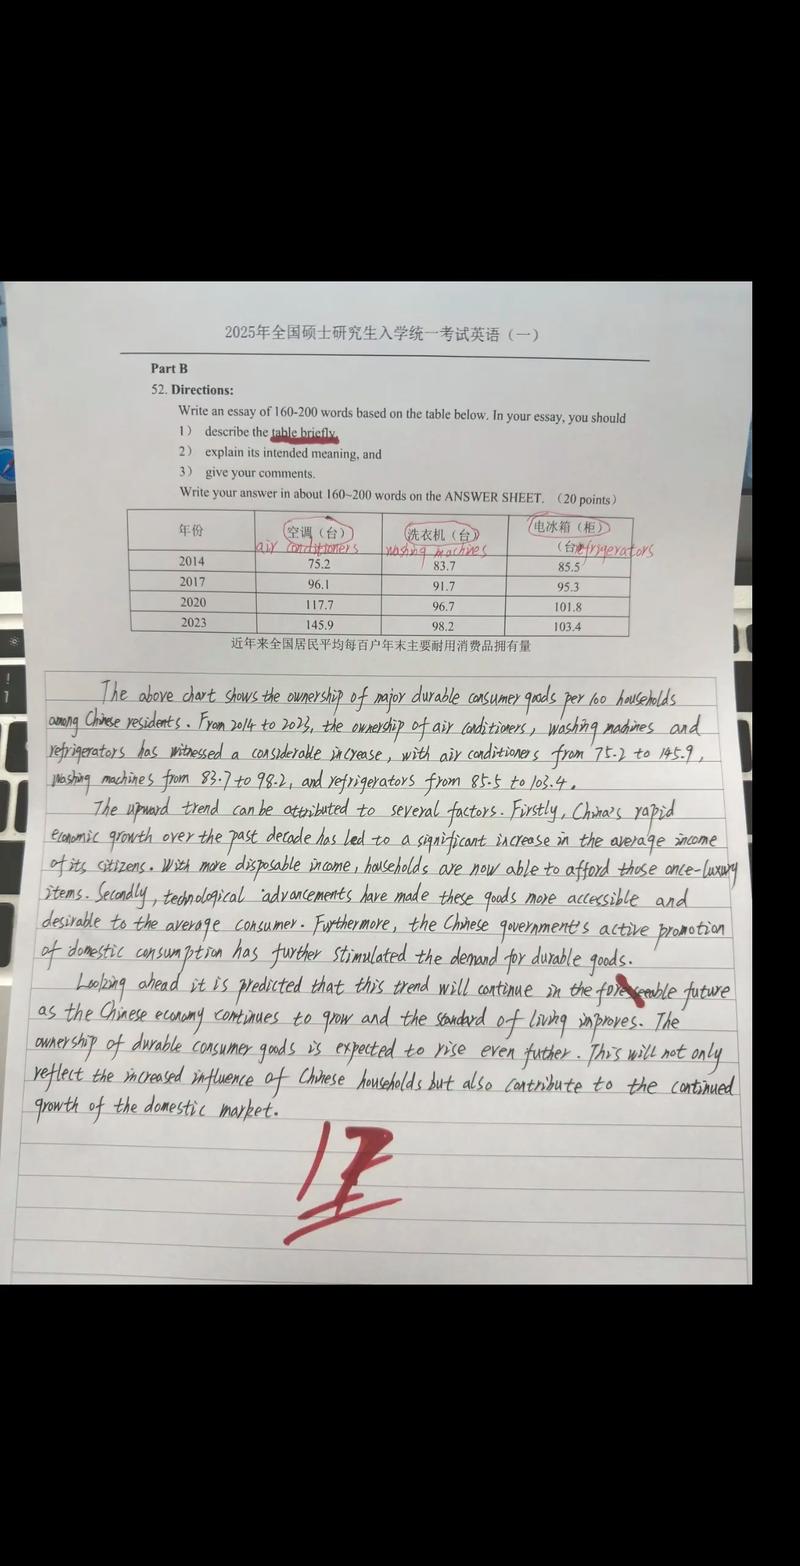 2025年全国硕士研究生入学统一考试英语（一）
Part B
52. Directions:
Write an essay of 160-200 words based on the table below. In your essay, you should
1） describe the table briefly,
2） explain its intended meaning, and
3） give your comments.
Write your answer in about 160~200 words on the ANSWER SHEET. （20 points）
年份 空调（台） 洗衣机（台） 电冰箱（柜）（台）
air conditioners washing machines refrigerators
2014 75.2 83.7 85.5
2017 96.1 91.7 95.3
2020 117.7 96.7 101.8
2023 145.9 98.2 103.4
近年来全国居民平均每百户年末主要耐用消费品拥有量
The above chart shows the ownership of major durable consumer goods per 100 households
among Chinese residents. From 2014 to 2023, the ownership of air conditioners, washing machines and
refrigerators has witnessed a considerable increase, with air conditioners from 75.2 to 145.9,
washing machines from 83.7 to 98.2, and refrigerators from 85.5 to 103.4.
The upward trend can be attributed to several factors. Firstly, China's rapid
economic growth over the past decade has led to a significant increase in the average income
of its citizens. With more disposable income, households are now able to afford those once-luxury
items. Secondly, technological advancements have made these goods more accessible and
desirable to the average consumer. Furthermore, the Chinese government's active promotion
of domestic consumption has further stimulated the demand for durable goods.
Looking ahead it is predicted that this trend will continue in the foreseeable future
as the Chinese economy continues to grow and the standard of living improves. The
ownership of durable consumer goods is expected to rise even futher. This will not only
reflect the increased influence of Chinese households but also contribute to the continued
growth of the domestic market.
17